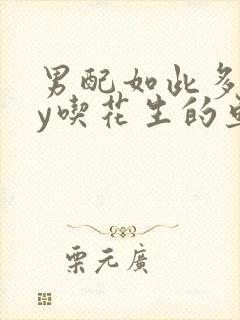 男配如此多
y喫花生的
栗元廣